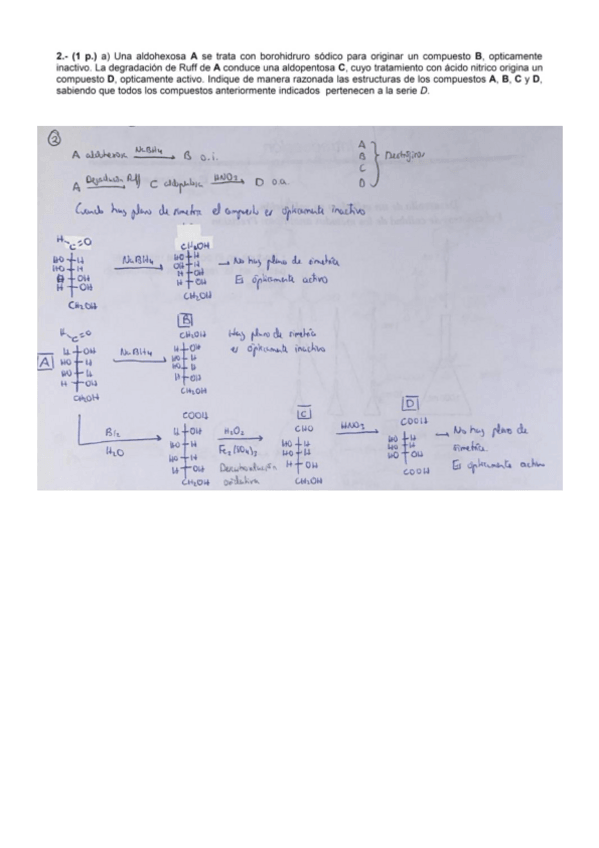 2.- (1 p.) a) Una aldohexosa A se trata con borohidruro sódico para originar un compuesto B, opticamente
inactivo. La degradación de Ruff de A conduce una aldopentosa C, cuyo tratamiento con ácido nítrico origina un
compuesto D, opticamente activo. Indique de manera razonada las estructuras de los compuestos A, B, C y D,
sabiendo que todos los compuestos anteriormente indicados pertenecen a la serie D.
2
A aldohexosa NaBH4 B o.i.
A
B
C
D
A Degradación Ruff C aldopentosa HNO3 D o.a.
Cuando hay plano de simetria el compuesto es ópticamente inactivo
H C=O
HO H
HO H
H OH
H OH
CH2OH
NaBH4
CH2OH
HO H
OH H
H OH
H OH
CH2OH
No hay plano de simetría
Es ópticamente activo
A
H C=O
H OH
HO H
HO H
H OH
CH2OH
NaBH4
B
CH2OH
H OH
HO H
HO H
H OH
CH2OH
Hay plano de simetría
es ópticamente inactivo
Br2
H2O
COOH
H OH
HO H
HO H
H OH
CH2OH
H2O2
Fe2(SO4)3
Descarboxilación
oxidativa
C
CHO
HO H
HO H
H OH
CH2OH
HNO3
D
COOH
HO H
HO H
HO OH
COOH
No hay plano de
simetría.
Es ópticamente activo